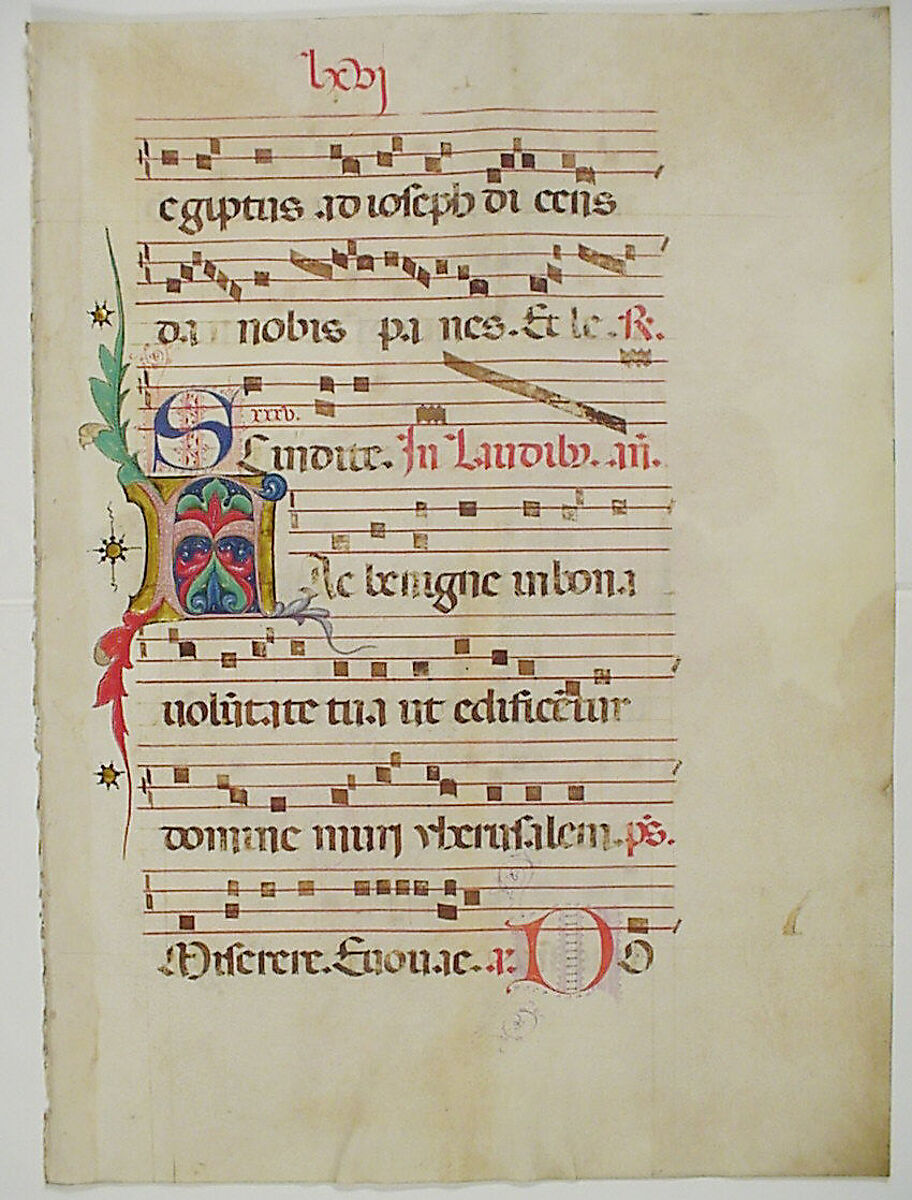 lxvj
egiptus ad ioseph di cens
da nobis pa nes. Et le. R.
xxxv.
S Cindite. In Laudib. añ.
F Ac benigne in bona
volũtate tua ut edificẽtur
domine muri yherusalem. ps.
Miserere. Euouae. a. D O